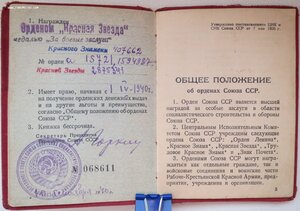 1. Награжден
Орденом „Красная Звезда"
медалью „За боевые заслуги"
Красного Знамени 407662
15721, 1534887
Красной Звезды 2875341
2. Имеет право, начиная с
1 IV 1940г.
на получение орденских денежных выдач
и на другие льготы и преимущества,
согласно „Общего Положения об орденах
Союза ССР".
3. Книжка бессрочна.
Секретарь Президиума
№ 068611
Утверждено постановлением ЦИК и
СНК Союза ССР от 7 мая 1936 г.
ОБЩЕЕ ПОЛОЖЕНИЕ
об орденах Союза ССР.
1. Орден Союза ССР является высшей
наградой за особые заслуги в области
социалистического строительства и обороны
Союза ССР.
2. Центральным Исполнительным Комитетом
Союза ССР учреждены следующие
ордена Союза ССР: „Орден Ленина",
„Красное Знамя", „Красная Звезда", „Трудовое
Красное Знамя" и „Знак Почета".
3. Орденами Союза ССР могут награждаться
как отдельные граждане, так
и войсковые единицы и воинские части
Рабоче-Крестьянской Красной Армии, предприятия,
учреждения и организации.
3